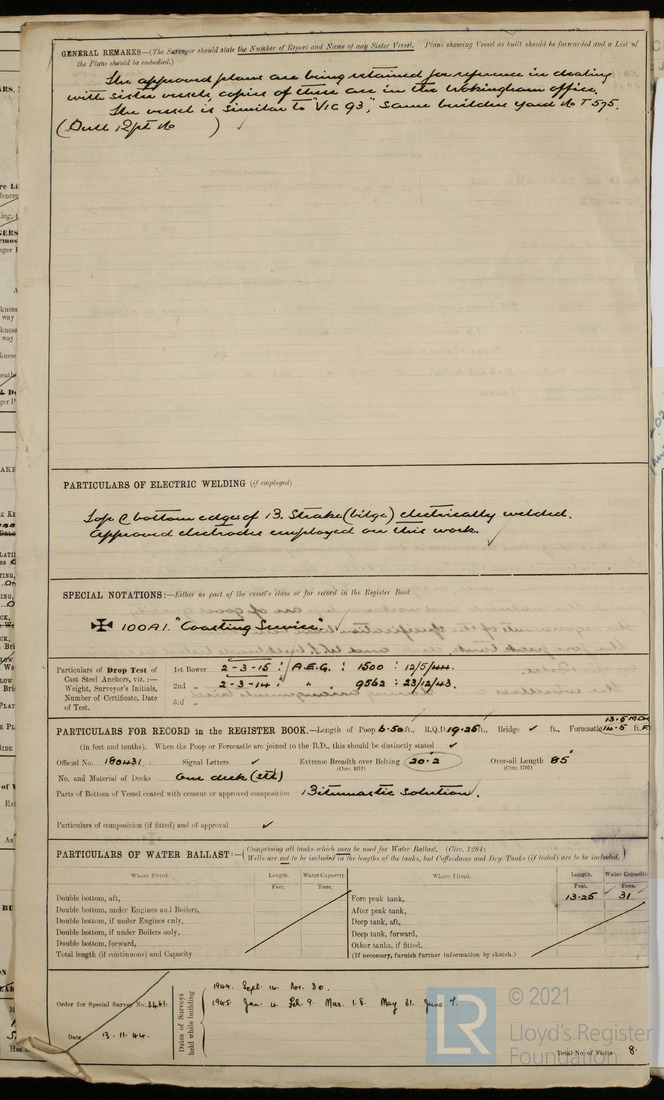 GENERAL REMARKS—(The Surveyor should state the Number of Report and Name of any Sister Vessel. Plans showing Vessel as built should be forwarded and a List of
the Plans should be embodied.)
The approved plans are being retained for reference in dealing
with sister vessels, copies of these are in the Wokingham office.
The vessel is similar to "VIC 93", same builders yard No T575.
(Hull Rpt No )
PARTICULARS OF ELECTRIC WELDING (if employed)
Top & bottom edges of B. Strake (bilge) electrically welded.
Approved electrodes employed on this work.
SPECIAL NOTATIONS:—Either as part of the vessel's class or for record in the Register Book
✠ 100A1. "Coasting Service"
Particulars of Drop Test of Cast Steel Anchors, viz.:— Weight, Surveyor's Initials, Number of Certificate, Date of Test.
1st Bower 2-3-15 : A.E.G. : 1500 : 12/5/44.
2nd " 2-3-14 : " 9562 : 23/12/43.
3rd "
13.6
PARTICULARS FOR RECORD in the REGISTER BOOK.—Length of Poop 6.50 ft., R.Q.D. 19.25 ft., Bridge ✓ ft., Forecastle 14.5 ft.
(in feet and tenths). When the Poop or Forecastle are joined to the B.D., this should be distinctly stated ✓
Official No. 180431 Signal Letters ✓ Extreme Breadth over Belting 20.2 Over-all Length 85'
(Circ. 1611) (Circ. 1703)
No. and Material of Decks One deck (stl)
Parts of Bottom of Vessel coated with cement or approved composition Bitumastic solution.
Particulars of composition (if fitted) and of approval ✓
PARTICULARS OF WATER BALLAST:—(Comprising all tanks which may be used for Water Ballast. (Circ. 1284:
Wells are not to be included in the lengths of the tanks, but Cofferdams and Dry Tanks (if tested) are to be included.)
Where Fitted. Length. Water Capacity. Where Fitted. Length. Water Capacity.
Feet. Tons. Feet. Tons.
Double bottom, aft, Fore peak tank, 13.25 31
Double bottom, under Engines and Boilers, After peak tank,
Double bottom, if under Engines only, Deep tank, aft,
Double bottom, if under Boilers only, Deep tank, forward,
Double bottom, forward, Other tanks, if fitted,
Total length (if continuous) and Capacity (If necessary, furnish further information by sketch.)
Order for Special Survey No. 3461.
Date 13.11.44.
Dates of Surveys held while building
1944. Sept. 14. Nov. 30.
1945 Jan. 4. Feb. 9. Mar. 1.8. May 31. June 7.
Total No. of Visits 8.
LR
© 2021
Lloyd's Register
Foundation